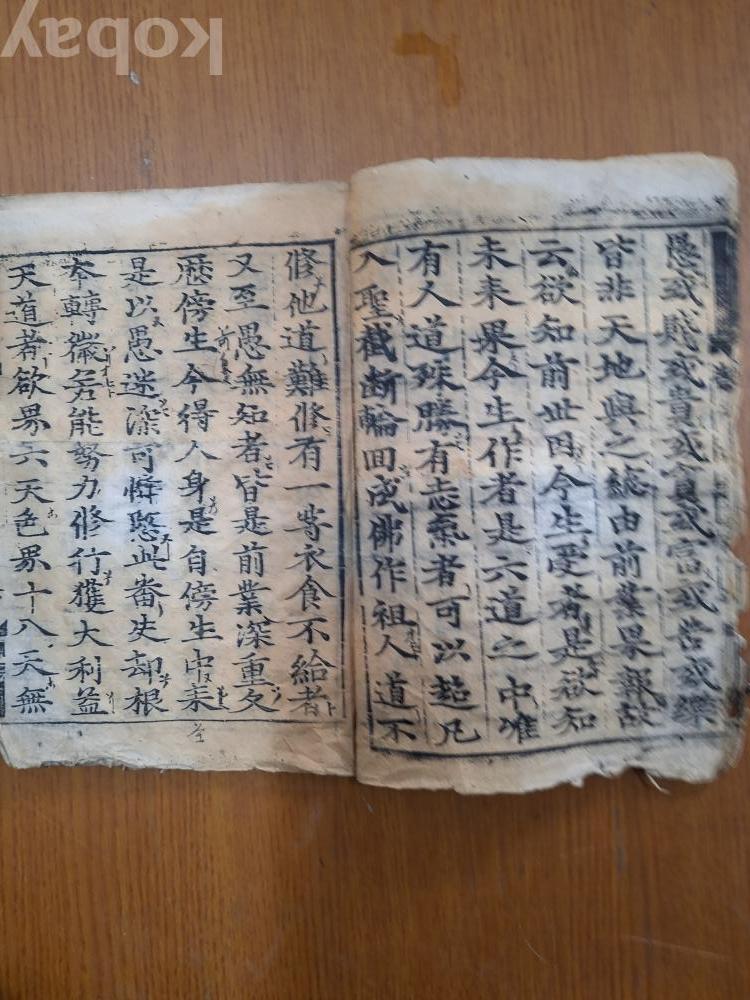 愚或賤或貴或貧或富或苦或樂
皆非天地與之総由前業果報故
云欲知前世因今生受者是欲知
未来果今生作者是六道之中唯
有人道殊勝有志氣者可以超凡
入聖截断輪回成佛作祖人道不
修他道難修有一等衣食不給者
又至愚無知者皆是前業深重久
歷傍生今得人身是自傍生中来
是以愚迷深可憐愍此番失却根
本轉微若能努力修行獲大利益
天道者欲界六天色界十八天無
kobay